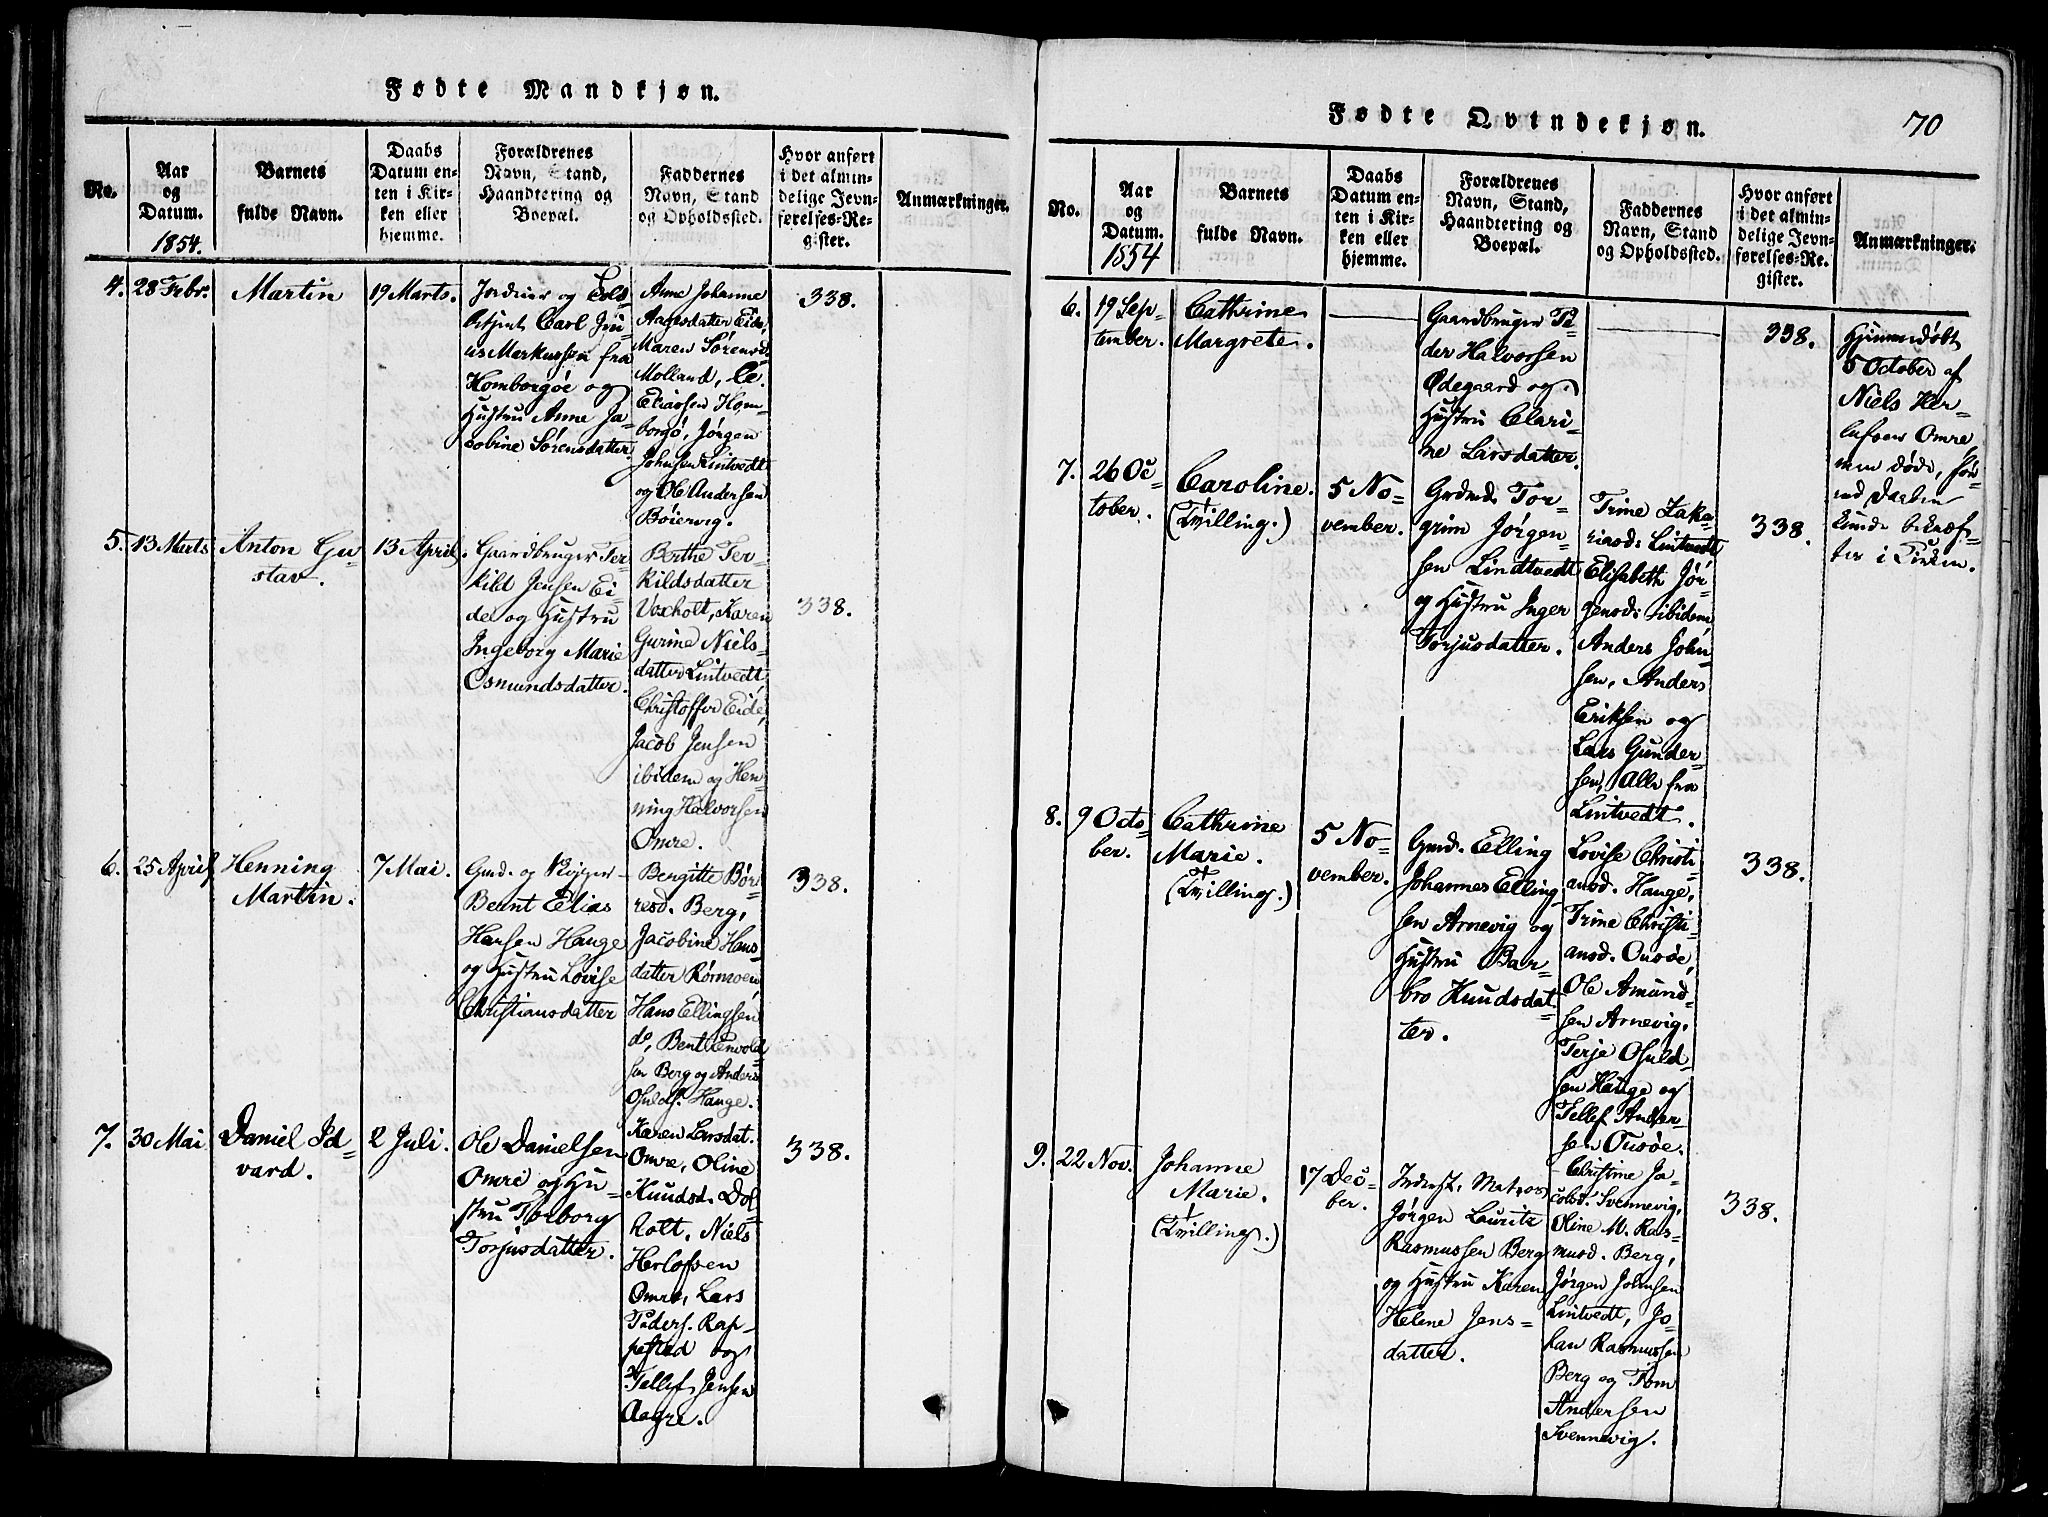 Fødte Mandkjøn.
No.
Aar
og
Datum.
1854.
Barnets
fulde Navn.
Daabs
Datum en-
ten i Kir-
ken eller
hjemme.
Forældrenes
Navn, Stand,
Haandtering og
Boepæl.
Faddernes
Navn, Stand
og Opholdssted.
Hvor anført
i det almin-
delige Jevn-
førelses-Re-
gister.
Anmærkninger.
4.
28 Febr.
Martin
19 Marts.
og
betjent Carl Jul
us Markussen fra
Homborgøe og
Hustru Anne Ja-
cobine Sørensdatter.
Anne Johanne
Aagesdatter Eide,
Maren Sørensd.
Molland,
Eliassen Hom-
borgö, Jørgen
Johnsen Lintvedt
og Ole Andersen
Böiervig.
338.
5.
13 Marts
Anton Gu-
stav.
13 April.
Gaardbruger Ter-
kild Jensen Ei-
de og Hustru
Ingeborg Marie
Osmundsdatter.
Berthe Ter-
kildsdatter
Voxholt, Karen
Gurine Niels-
datter Lintvedt,
Christoffer Eide,
Jacob Jensen
ibidem og Hen-
ning Halvorsen
Omre.
338.
6.
25 April
Henning
Martin.
7 Mai.
Gmd. og Rigger
Bernt Elias
Hansen Hauge
og Hustru Lovise
Christiansdatter
Bergitte Bør-
resd. Berg,
Jacobine Hans-
datter Rønnoen
Hans Ellingsen
do, Bent Envold-
sen Berg og Anders
Osulds. Hauge.
338.
7.
30 Mai
Daniel Id-
vard.
2 Juli.
Ole Danielsen
Omre og Hu-
stru Torborg
Torjusdatter.
Karen Larsdat.
Omre, Oline
Knudsd. Dol-
holt, Niels
Herlofsen
Omre, Lars
Peders. Rap-
pestad og
Tellef Jensen
Aagre.
338.
Fødte Qvindekjøn.
70
No.
Aar
og
Datum.
1854
Barnets
fulde Navn.
Daabs
Datum en-
ten i Kir-
ken eller
hjemme.
Forældrenes
Navn, Stand,
Haandtering og
Boepæl.
Faddernes
Navn, Stand
og Opholdssted.
Hvor anført
i det almin-
delige Jevn-
førelses-Re-
gister.
Anmærkninger.
6.
19 Sep-
tember.
Cathrine
Margrete.
Gaardbruger Pe-
der Halvorsen
Ødegaard og
Hustru Clari-
ne Larsdatter.
338.
Hjemmedøbt
5 October af
Niels Her-
lufsen Omre
men døde, før-
end Daaben
kunde bekræf-
tes i Kirken.
7.
26 Oc-
tober.
Caroline.
(Tvilling.)
5 No-
vember.
Grdmd. Tor-
grim Jørgen-
sen Lindtvedt
og Hustru Inger
Torjusdatter.
Trine Zaka-
riasd. Lintvedt
Elisabeth Jør-
gensd. ibidem
Anders John-
sen, Anders
Eriksen og
Lars Gunder-
sen, Alle fra
Lintvedt.
338.
8.
9 Octo-
ber.
Cathrine
Marie.
(Tvilling.)
5 No-
vember.
Gmd. Elling
Johannes Elling-
sen Arnevig og
Hustru Bar-
bro Knudsdat-
ter.
Lovise Christi-
ansd. Hauge,
Trine Christi-
ansd. Ousøe,
Ole Amund-
sen Arnevig,
Terje Osuld-
sen Hauge og
Tellef Ander-
sen Ousøe.
338.
9.
22 Nov.
Johanne
Marie.
(Tvilling.)
17 Decem-
ber.
Inderst, Matros
Jørgen Lauritz
Rasmussen Berg
og Hustru Karen
Helene Jens-
datter.
Christine Ja-
cobsd. Svennevig,
Oline M. Ras-
musd. Berg,
Jørgen Johnsen
Lintvedt, Jo-
han Rasmussen
Berg og Tom
Andersen
Svennevig.
338.